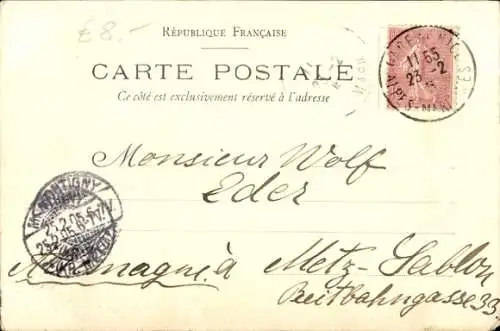 £8.-
RÉPUBLIQUE FRANÇAISE
CARTE POSTALE
Ce côté est exclusivement réservé à l'adresse
11 55
23 -2
MONTIGNY
25.2.05.6-7V.
Monsieur Wolf
Eder
Allemagne à Metz-Sablon
Reitbahngasse 33